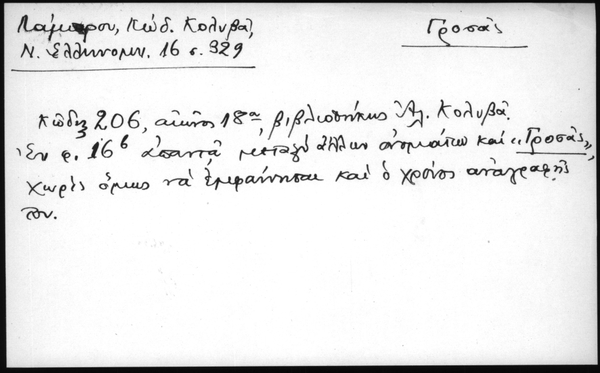 Λάμπρου, Κώδ. Κολυβᾶ,
Γροσᾶς
Ν. Ἑλληνομν. 16 σ. 329
Κῶδιξ 206, αἰῶνος 18ου, βιβλιοθήκης Ἀλ. Κολυβᾶ.
Ἐν φ. 16β ἀπαντᾷ μεταξὺ ἄλλων ὀνομάτων καὶ «Γροσᾶς»,
χωρὶς ὅμως νὰ ἐμφαίνηται καὶ ὁ χρόνος ἀναγραφῆς
του.